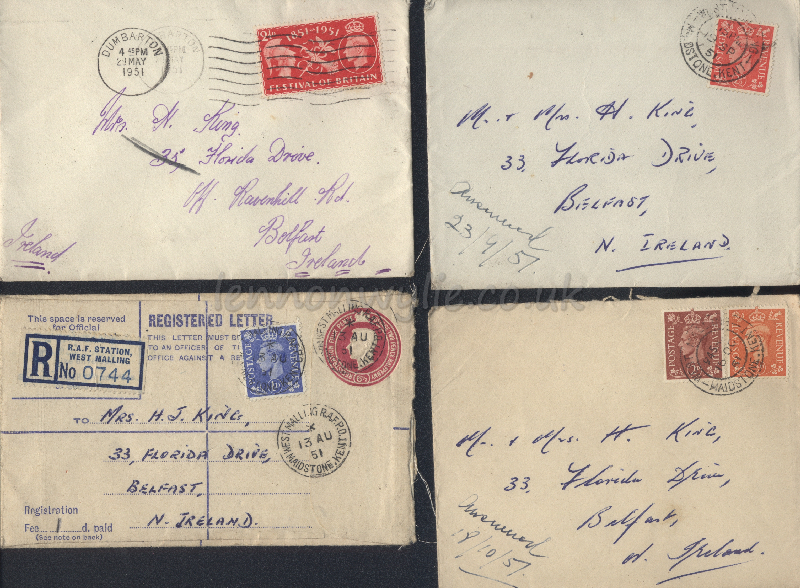 DUMBARTON
4 45PM
MAY
1951
2½D 1851-1951
FESTIVAL OF BRITAIN
Mrs. H. King.
35, Florida Drive.
Off Ravenhill Rd.
Belfast
Ireland
Ireland
MAIDSTONE KENT
51
REVENUE
M. & Mrs. H. King,
33, Florida Drive,
Belfast,
N. Ireland.
Answered
23/9/51
lennonwylie.co.uk
This space is reserved
for Official
REGISTERED LETTER
THIS LETTER MUST B
TO AN OFFICER OF THE
OFFICE AGAINST A RE
R
R.A.F. STATION,
WEST MALLING
No 0744
POSTAGE REVENUE
AU
51
TO Mrs. H.J. King,
33, Florida Drive,
Belfast,
N. Ireland.
WEST MALLING R.A.F. P.O.
13 AU
51
MAIDSTONE, KENT
Registration
Fee 1 d. paid
(See note on back)
POSTAGE REVENUE
REVENUE
MAIDSTONE
M. & Mrs. H. King,
33, Florida Drive,
Belfast,
N. Ireland.
Answered
18/10/51.